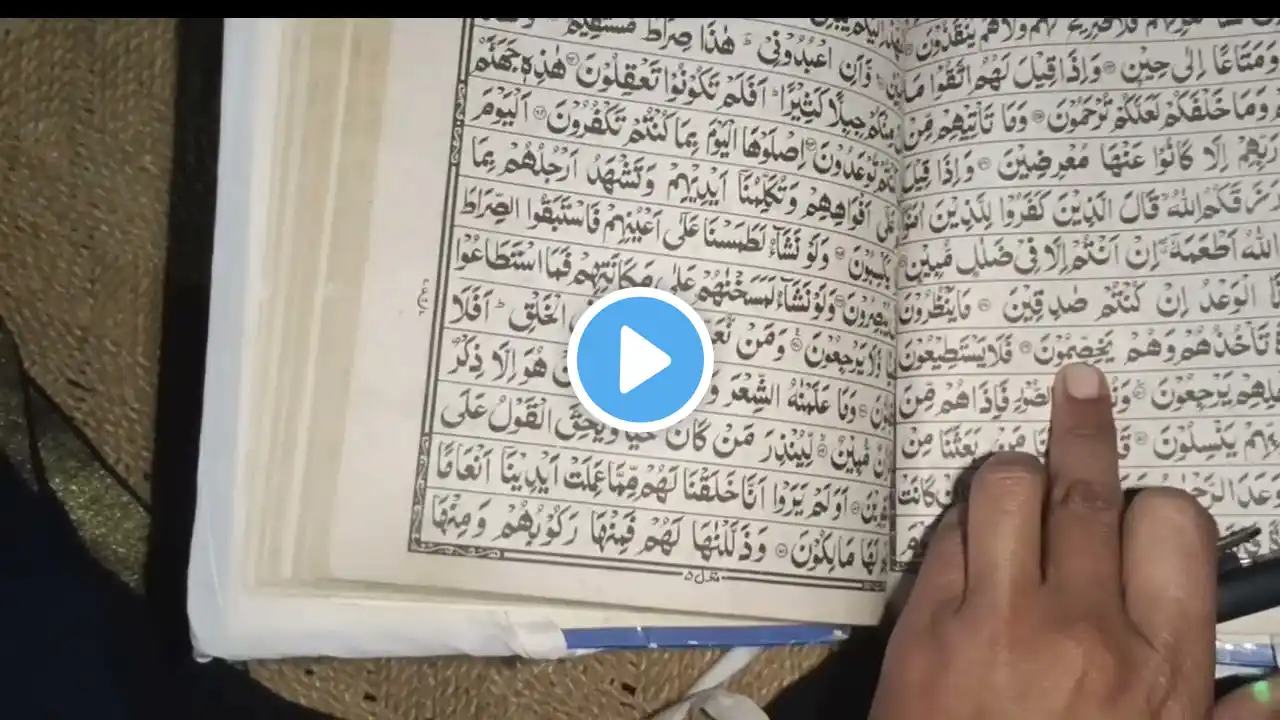 لَهُمْ وَلَا هُمْ يُنْقَذُوْنَ
وَمَتَاعًا اِلٰى حِيْنٍ ۝ وَاِذَا قِيْلَ لَهُمُ اتَّقُوْا مَا
وَمَا خَلْفَكُمْ لَعَلَّكُمْ تُرْحَمُوْنَ ۝ وَمَا تَاْتِيْهِمْ مِّنْ
رَبِّهِمْ اِلَّا كَانُوْا عَنْهَا مُعْرِضِيْنَ ۝ وَاِذَا قِيْلَ
اللّٰهُ قَالَ الَّذِيْنَ كَفَرُوْا لِلَّذِيْنَ
اللّٰهُ اَطْعَمَهٗٓ اِنْ اَنْتُمْ اِلَّا فِيْ ضَلٰلٍ مُّبِيْنٍ ۝
الْوَعْدُ اِنْ كُنْتُمْ صٰدِقِيْنَ ۝ مَا يَنْظُرُوْنَ
تَاْخُذُهُمْ وَهُمْ يَخِصِّمُوْنَ ۝ فَلَا يَسْتَطِيْعُوْنَ
يَرْجِعُوْنَ ۝ فَاِذَا هُمْ مِّنَ
يَنْسِلُوْنَ ۝ مَنْۢ بَعَثَنَا مِنْ
وَعَدَ كَانَتْ
وَّاَنِ اعْبُدُوْنِيْ ؕ هٰذَا صِرَاطٌ مُّسْتَقِيْمٌ ۝
مِنْكُمْ جِبِلًّا كَثِيْرًا ؕ اَفَلَمْ تَكُوْنُوْا تَعْقِلُوْنَ ۝ هٰذِهٖ جَهَنَّمُ
تُوْعَدُوْنَ ۝ اِصْلَوْهَا الْيَوْمَ بِمَا كُنْتُمْ تَكْفُرُوْنَ ۝ اَلْيَوْمَ
عَلٰٓى اَفْوَاهِهِمْ وَتُكَلِّمُنَآ اَيْدِيْهِمْ وَتَشْهَدُ اَرْجُلُهُمْ بِمَا
يَكْسِبُوْنَ ۝ وَلَوْ نَشَآءُ لَطَمَسْنَا عَلٰٓى اَعْيُنِهِمْ فَاسْتَبَقُوا الصِّرَاطَ
يُبْصِرُوْنَ ۝ وَلَوْ نَشَآءُ لَمَسَخْنٰهُمْ عَلٰى مَكَانَتِهِمْ فَمَا اسْتَطَاعُوْا
وَّلَا يَرْجِعُوْنَ ۝ وَمَنْ الْخَلْقِ ؕ اَفَلَا
وَمَا عَلَّمْنٰهُ الشِّعْرَ هُوَ اِلَّا ذِكْرٌ
مُّبِيْنٌ ۝ لِّيُنْذِرَ مَنْ كَانَ حَيًّا وَّيَحِقَّ الْقَوْلُ عَلَى
اَوَلَمْ يَرَوْا اَنَّا خَلَقْنَا لَهُمْ مِّمَّا عَمِلَتْ اَيْدِيْنَآ اَنْعَامًا
لَهَا مٰلِكُوْنَ ۝ وَذَلَّلْنٰهَا لَهُمْ فَمِنْهَا رَكُوْبُهُمْ وَمِنْهَا
منزل ۵